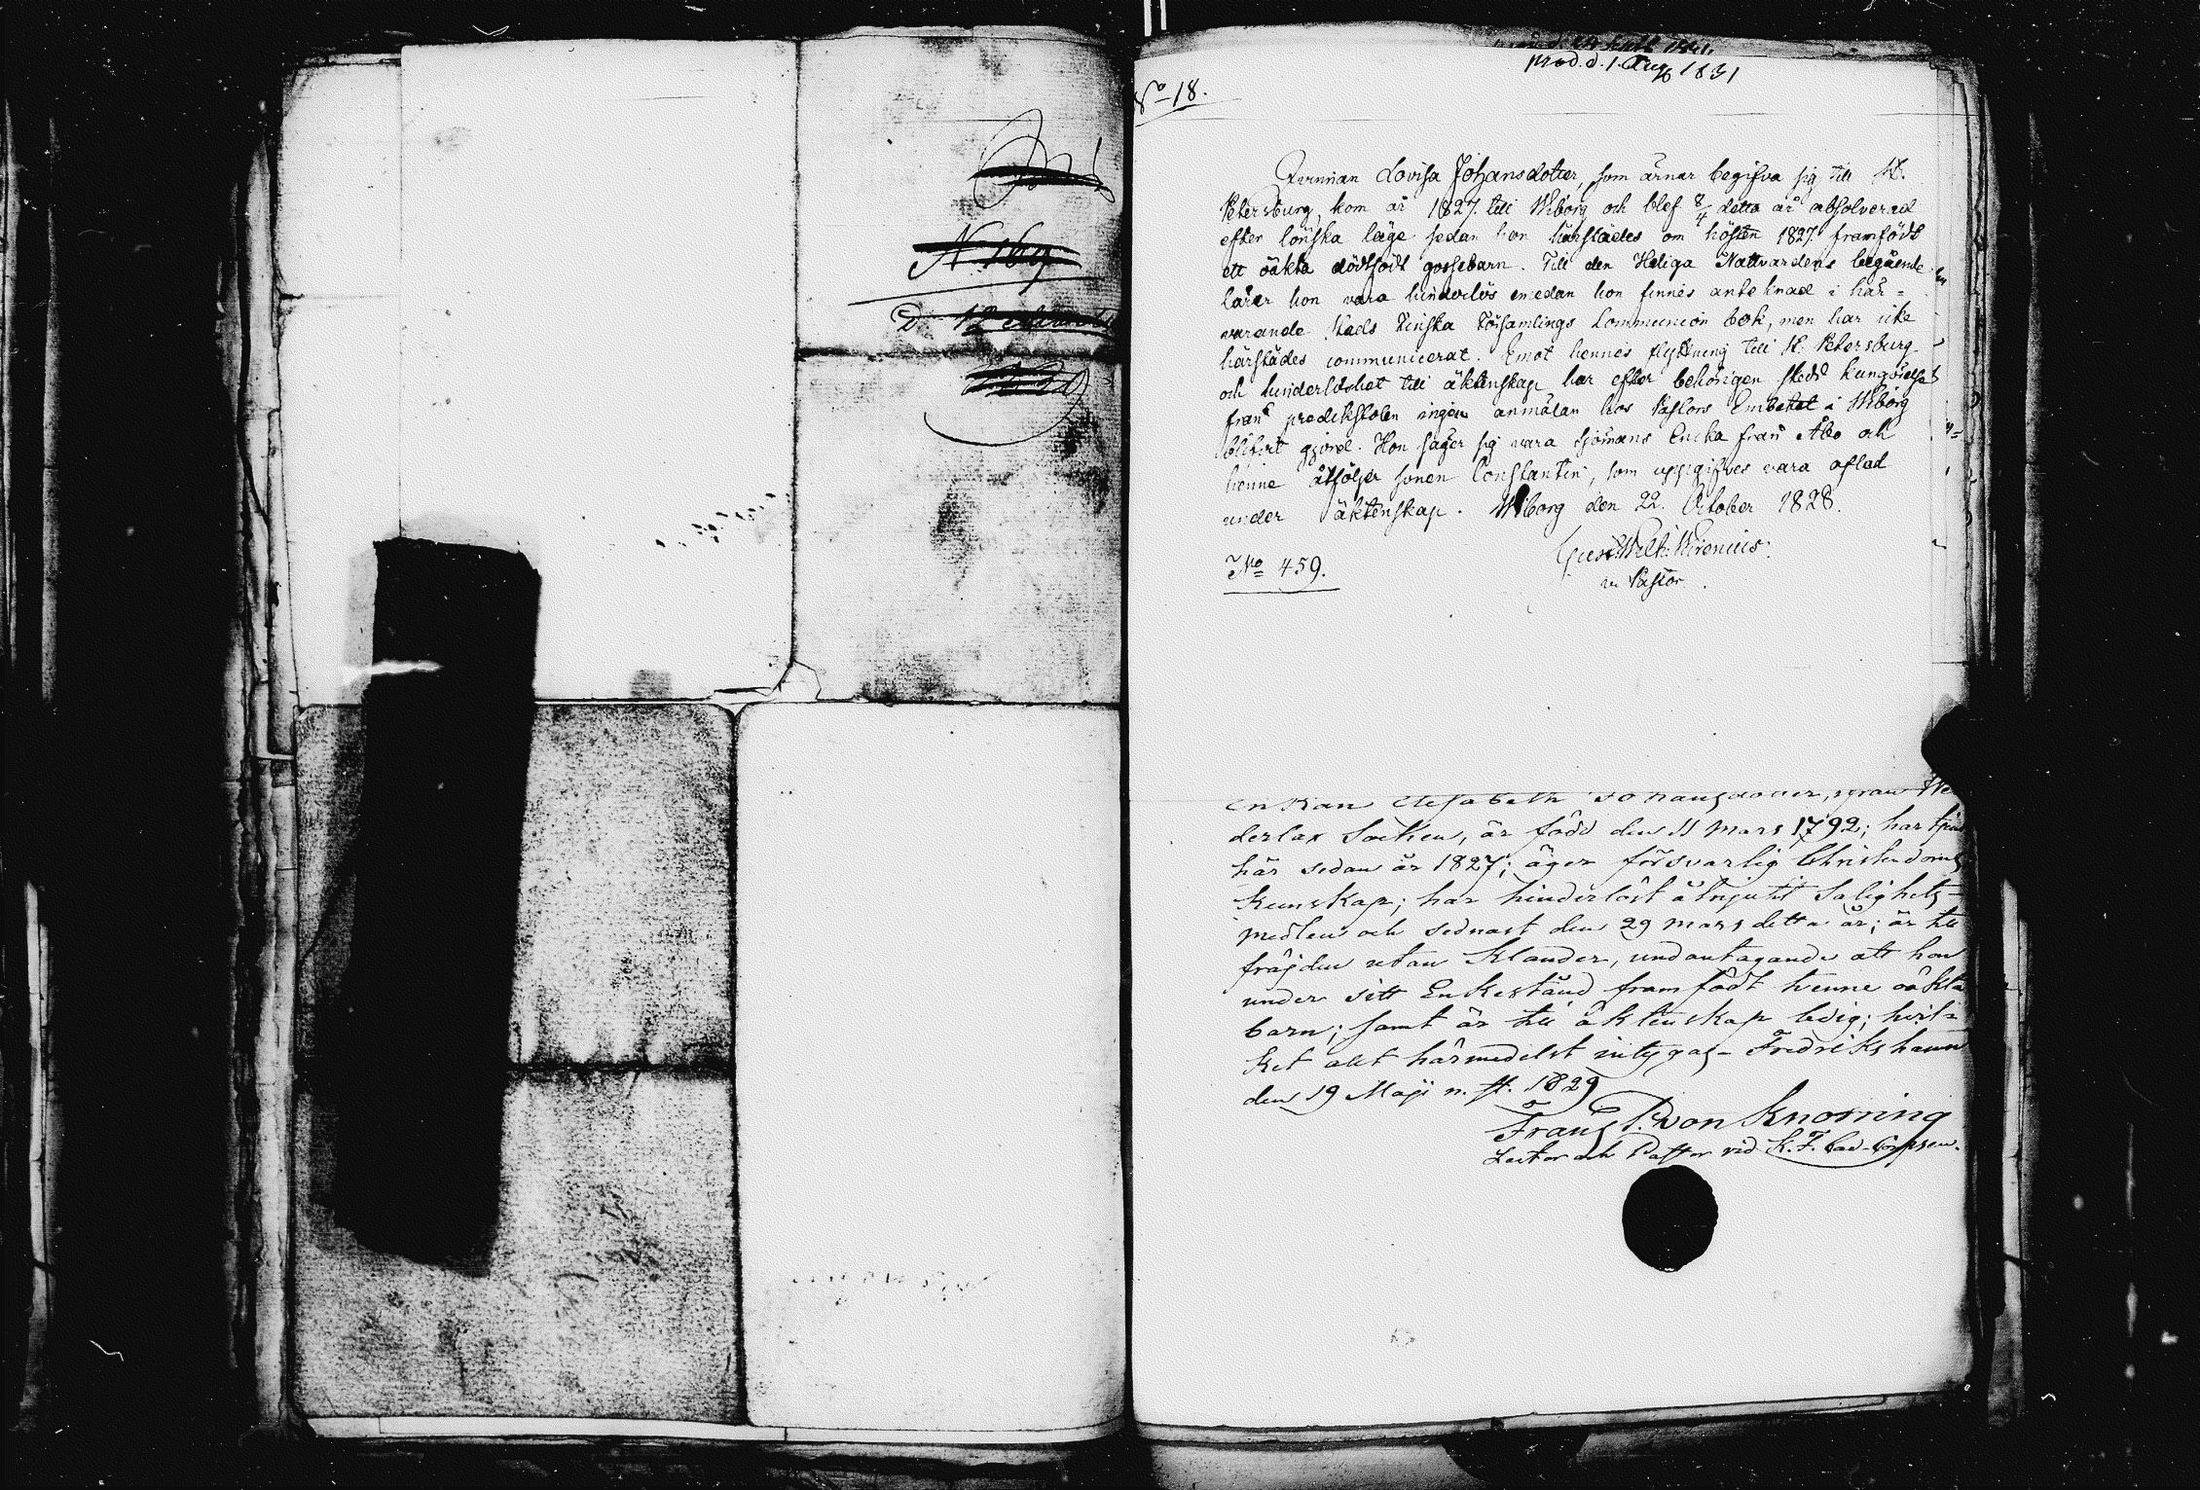 N 169
prod. d. 1. Aug 1831
No 18.
Qvinnan Lovisa Johansdotter, som ärnar begifva sig till St.
Petersburg, kom år 1827. till Wiborg och blef 8/4 detta år absolverad
efter lönska läge sedan hon härstädes om hösten 1827. framfödt
ett oäkta dödfödt gossebarn. Till den Heliga Nattvardens begående
lärer hon vara hinderlös emedan hon finnes anteknad i här-
varande Stads Finska Församlings Communion bok, men har icke
härstädes communicerat. Emot hennes flyttning till St. Petersburg
och hinderlöshet till äktenskap har efter behörigen skedd kungörelse
från predikstolen ingen anmälan hos Pastors Embetet i Wiborg
blifvit gjord. Hon säger sig vara sjömans Encka från Åbo och
henne åtföljer sonen Constantin, som uppgifves vara aflad
under äktenskap. Wiborg den 22. October 1828.
Gust. Wilh. Wironius.
v. Pastor.
No 459.
Enkan Elisabeth Johansdotter, ifrån We
derlax Socken, är född den 11 Mars 1792; har tjent
här sedan år 1827; äger försvarlig Christendoms
kunskap; har hinderlöst åtnjutit Salighets-
medlen och sednast den 29 Mars detta år; är till
frägden utan klander, undantagande att hon
under sitt Enkestånd framfödt tvenne oäkta
barn; samt är till äktenskap ledig; hvil-
ket allt härmedelst intygas- Fredrikshamn
den 19 Maji n. st. 1829
Frans P. von Knorring
Lector och Pastor vid K. F. Cad-Corpsen.